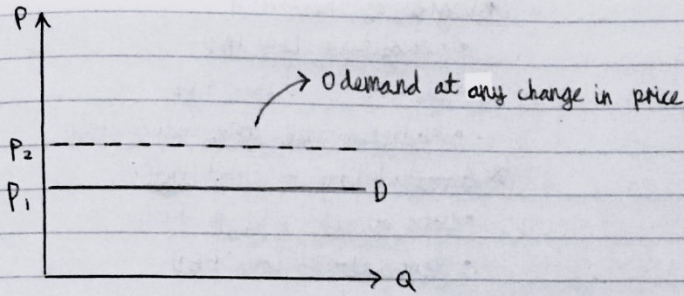 P
0 demand at any change in price
P₂
P₁
D
Q